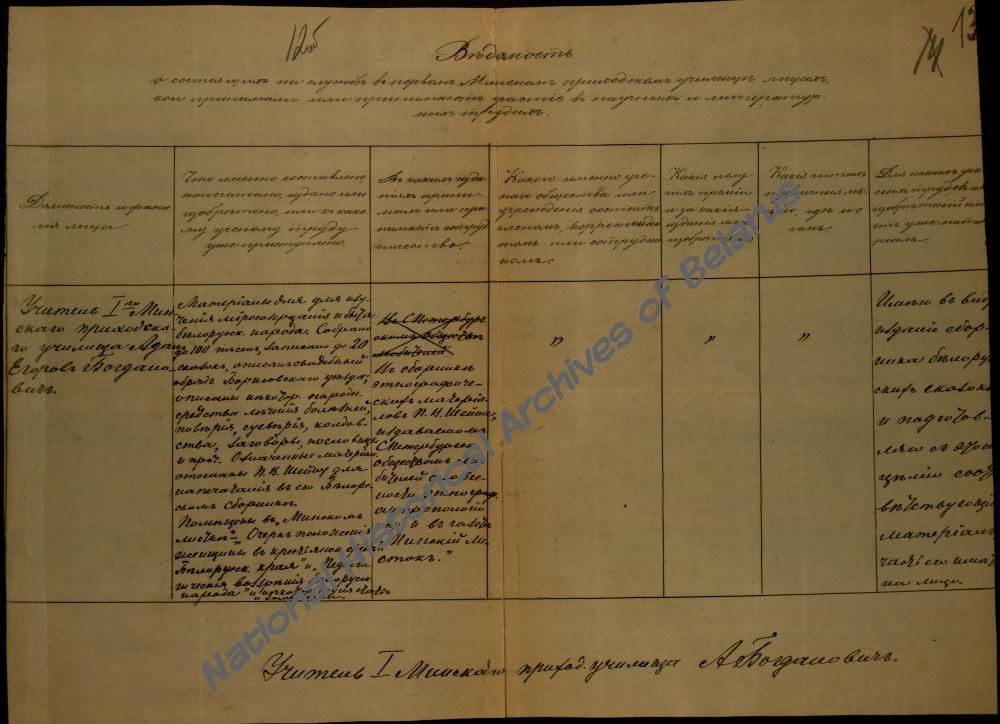 12об
13
Вѣдомость
о состоящихъ на службѣ въ первомъ Минскомъ приходскомъ училищѣ лицахъ,
кои принимали или принимаютъ участіе въ научныхъ и литератур-
ныхъ трудахъ.
Должность и фами-
лія лица
Что именно составлено,
написано, издано или
изобрѣтено, или къ како-
му ученому труду
уже приступлено.
Въ какихъ изда-
ніяхъ прини-
малъ или при-
нимаетъ сотруд-
ничество.
Какого именно уче-
наго общества или
учрежденія состоитъ
членомъ, корреспонден-
томъ или сотрудни-
комъ.
Какія полу-
чилъ преміи
и за какія
изданія или
изобрѣтенія
Какія читалъ
публичныя лек-
ціи, гдѣ и о
чемъ.
Для какихъ уче-
ныхъ трудовъ или
изобрѣтеній имѣ-
етъ уже матері-
алъ.
Учитель I го Мин-
скаго приходска-
го училища Адамъ
Егоровъ Богдано-
вичъ.
Матеріалы для изу-
ченія міросозерцанія и быта
бѣлорусск. народа. Собрано
до 100 пѣсенъ, записано до 20
сказокъ, описанъ свадебный
обрядъ Борисовскаго уѣзда;
описаны нѣкотор. народн.
средства лѣченія болѣзней,
повѣрія, суевѣрія, колдов-
ства, заговоры, пословицы
и проч. Означенные матеріалы
отосланы П. В. Шейну для
напечатанія въ его Бѣлорус-
скомъ Сборникѣ.
Помѣщены въ „Минскомъ
листкѣ" „Очеркъ положенія
женщины въ крестьянск. семьѣ
Бѣлорусск. края" и „Педаго-
гическія воззрѣнія бѣлорусск.
народа" и
Въ С.Петербург-
скомъ обществѣ
любителей
Въ сборникѣ
этнографиче-
скихъ матеріа-
ловъ П. В. Шейна,
издаваемомъ
С.Петербургск.
обществомъ лю-
бителей словес-
ности, этнограф.
антропологіи
и въ газетѣ
„Минскій Ли-
стокъ."
"
"
"
Имѣю въ виду
изданіе сбор-
ника бѣлорус-
скихъ сказокъ
и подготов-
ляю съ этою
цѣлію соот-
вѣтствующій
матеріалъ
часть его имѣет-
на лицо.
Учитель I Минскаго приход. училища А Богдановичъ.
National Historical Archives of Belarus